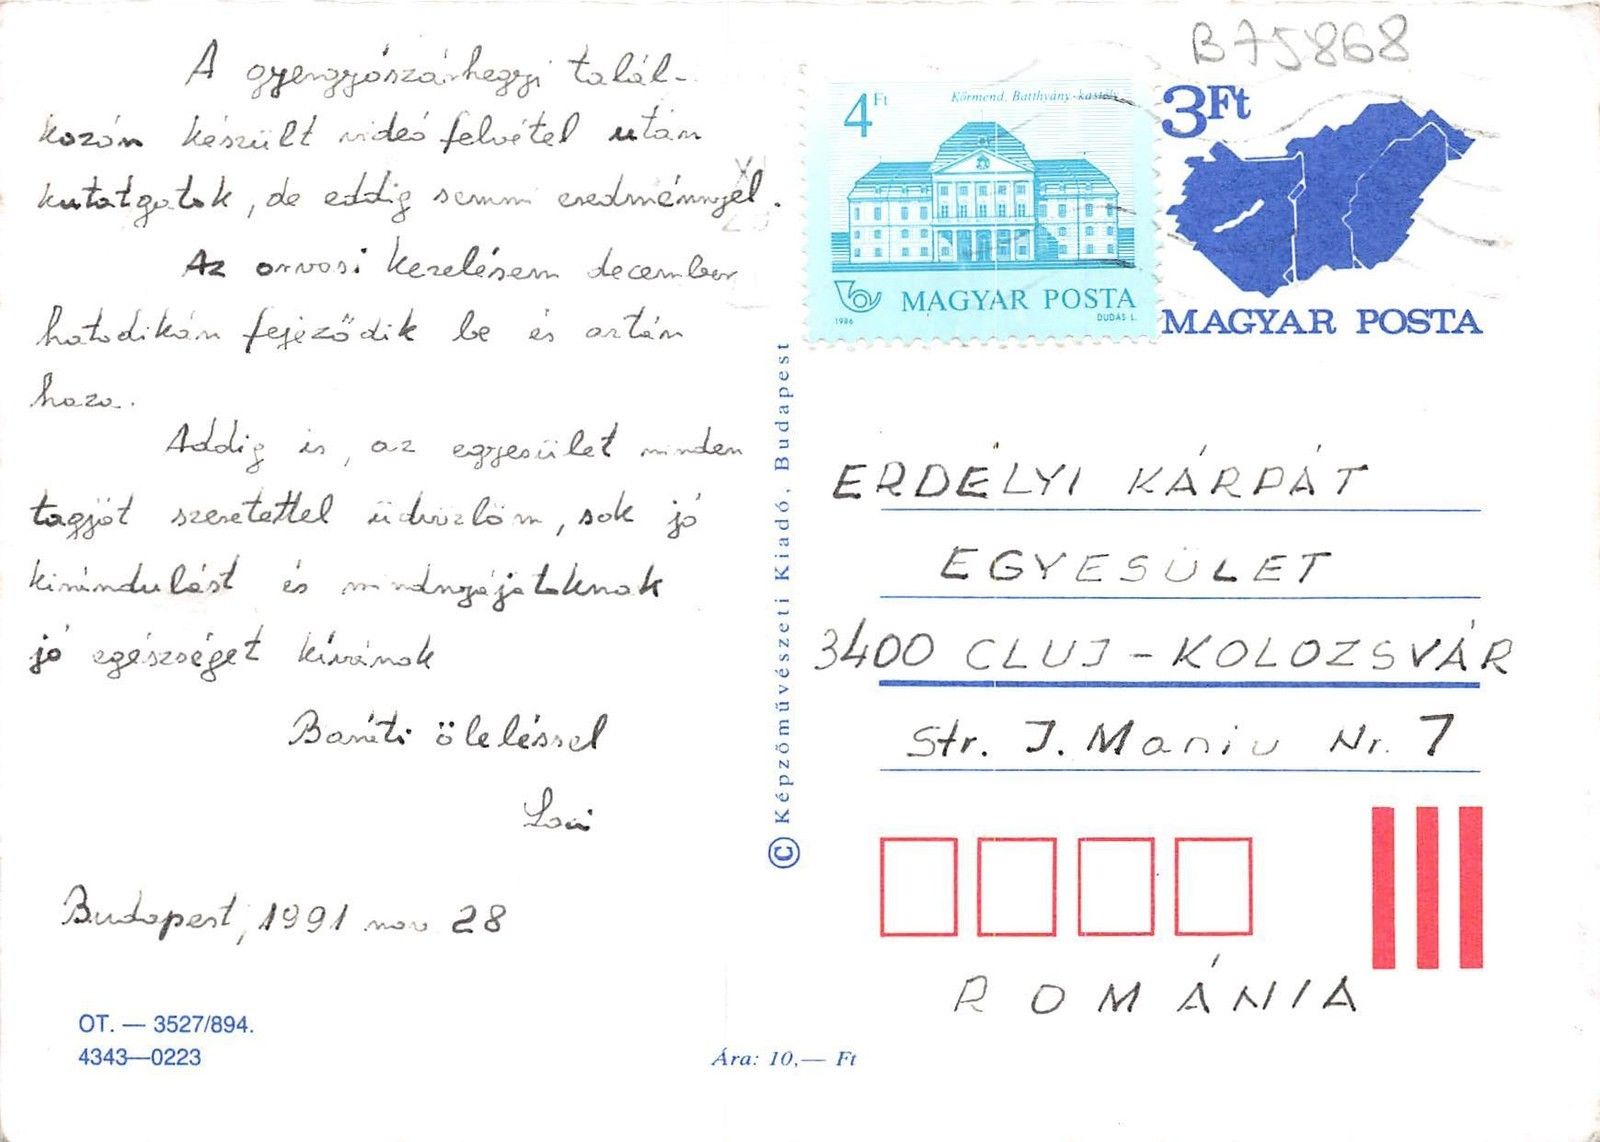 A gyergyószárhegyi talál-
kozón készült videó felvétel után
kutatgatok, de eddig semmi eredménnyel.
Az orvosi kezelésem december
hatodikán fejeződik be és aztán
haza.
Addig is, az egyesület minden
tagját szeretettel üdvözlöm, sok jó
kirándulást és mindnyájatoknak
jó egészséget kívánok
Baráti öleléssel
Budapest, 1991 nov 28
OT. — 3527/894.
4343—0223
Ára: 10,— Ft
© Képzőművészeti Kiadó, Budapest
B75868
4 Ft
Körmend, Batthyány-kastély
MAGYAR POSTA
1986
DUDÁS L.
3Ft
MAGYAR POSTA
ERDÉLYI KÁRPÁT
EGYESÜLET
3400 CLUJ - KOLOZSVÁR
Str. I. Maniu Nr. 7
ROMÁNIA